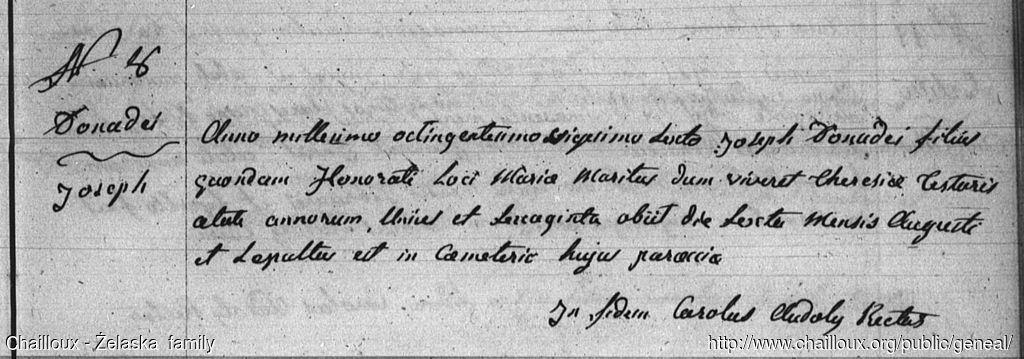 N 8
Donadei
Joseph
Anno millesimo octingentesimo vigesimo sexto Joseph Donadei filius
quondam Honorati Loci Mariæ Maritus dum viveret Theresiæ Testoris
ætate annorum Unius et Sexaginta obiit die Sexta Mensis Augusti
et Sepultus est in Cœmeterio hujus parœciæ
In fidem Carolus Audoly Rector
Chailloux - Żelaska family
http://www.chailloux.org/public/geneal/